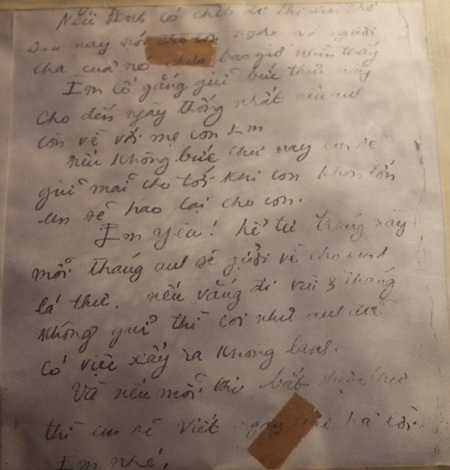 Nếu Anh có chết đi thì em nhớ
sau này nói cho con nghe về người
cha của nó chưa bao giờ nhìn thấy
Em cố gắng giữ bức thư này
cho đến ngày thống nhất nếu
còn về với mẹ con Em
nếu không bức thư nay em sẽ
giữ mãi cho tới khi con khôn lớn
em sẽ trao lại cho con.
Em yêu! kể từ tháng này
mỗi tháng anh sẽ gửi về cho em 1
lá thư. nếu vắng đi vài 3 tháng
không gửi thì coi như anh đã
có việc xẩy ra không lành.
Và nếu mỗi thư bắt được
thì em sẽ viết ngay
Em nhé!